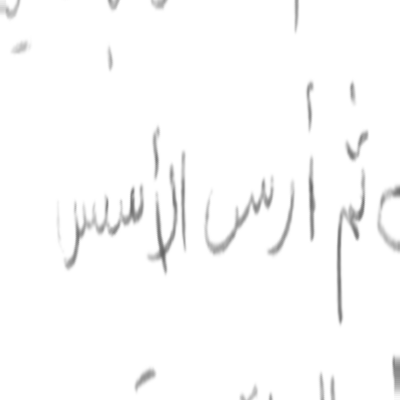 ثم أرس الأسس